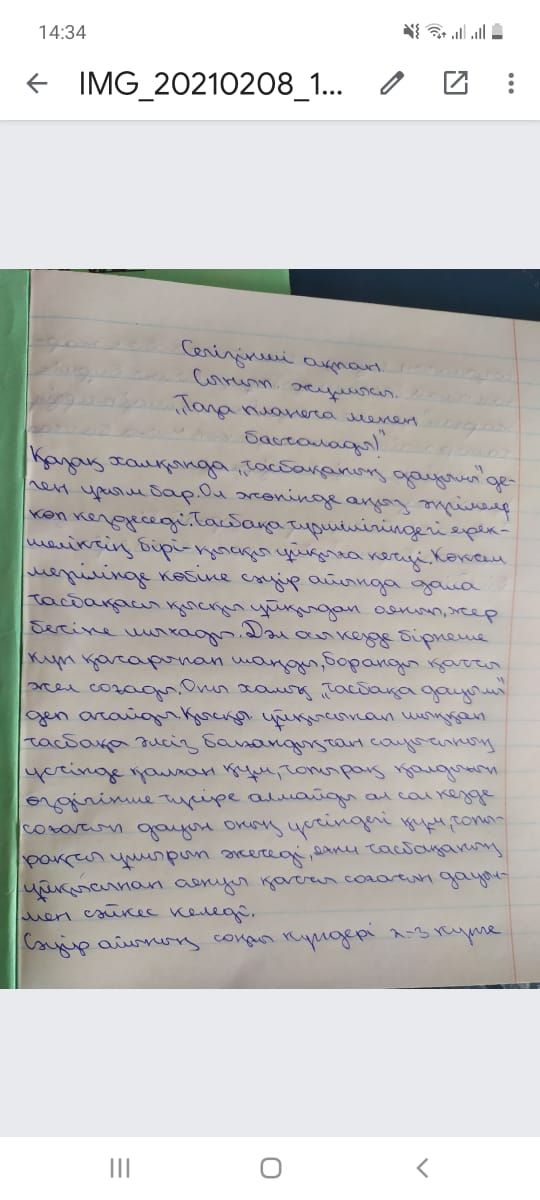 14:34
IMG_20210208_1...
Сегізінші ақпан.
Сынып жұмысы.
„Таза планета менен
басталады!"
Қазақ халқында „тасбақаның дауылы" де-
ген ұғым бар. Ол жөнінде аңыз әңгімелер
көп кездеседі. Тасбақа тіршілігіндегі ерек-
шеліктің бірі-қысқы ұйқыға кетуі. Көктем
мезгілінде көбіне сәуір айында дала
тасбақасы қысқы ұйқыдан оянып, жер
бетіне шығады. Дәл ал кезде бірнеше
күн қатарынан шаңды, боранды қатты
жел соғады. Оны халық „тасбақа дауылы"
деп атайды. Қысқы ұйқысынан шыққан
тасбақа әлсіз болғандықтан сауытының
үстінде қалған құм, топырақ қалдығын
өздігінше түсіре алмайды ал сол кезде
соғатын дауыл оның үстіндегі құм, топы-
рақты ұшырып әкетеді, яғни тасбақаның
ұйқысынан оянуы қатты соғатын дауыл-
мен сәйкес келеді.
Сәуір айының соңғы күндері 2-3 күнге